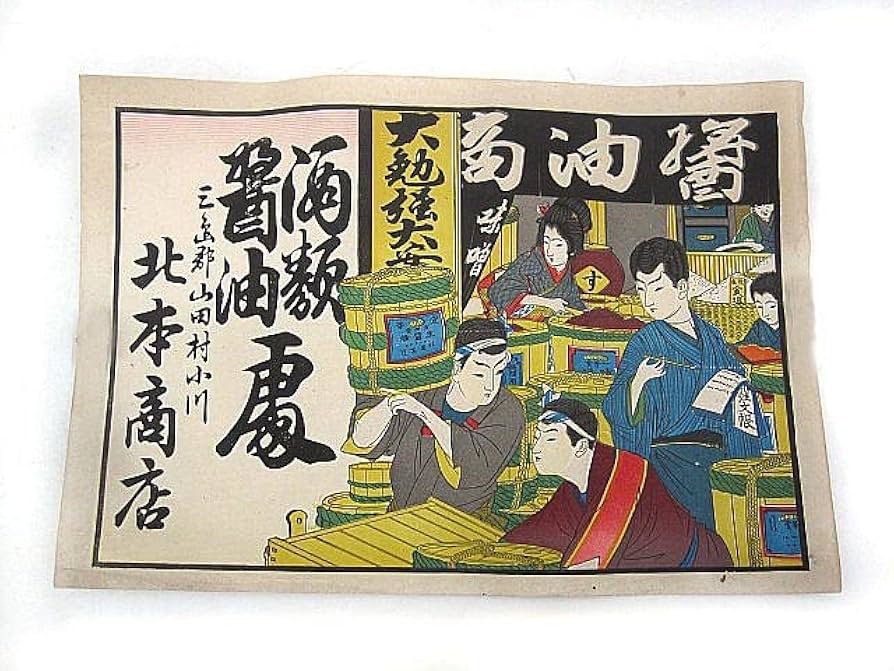 醬油商
味噌
す
文帳
大勉強大安
酒類
醬油
處
三島郡山田村小川
北本商店